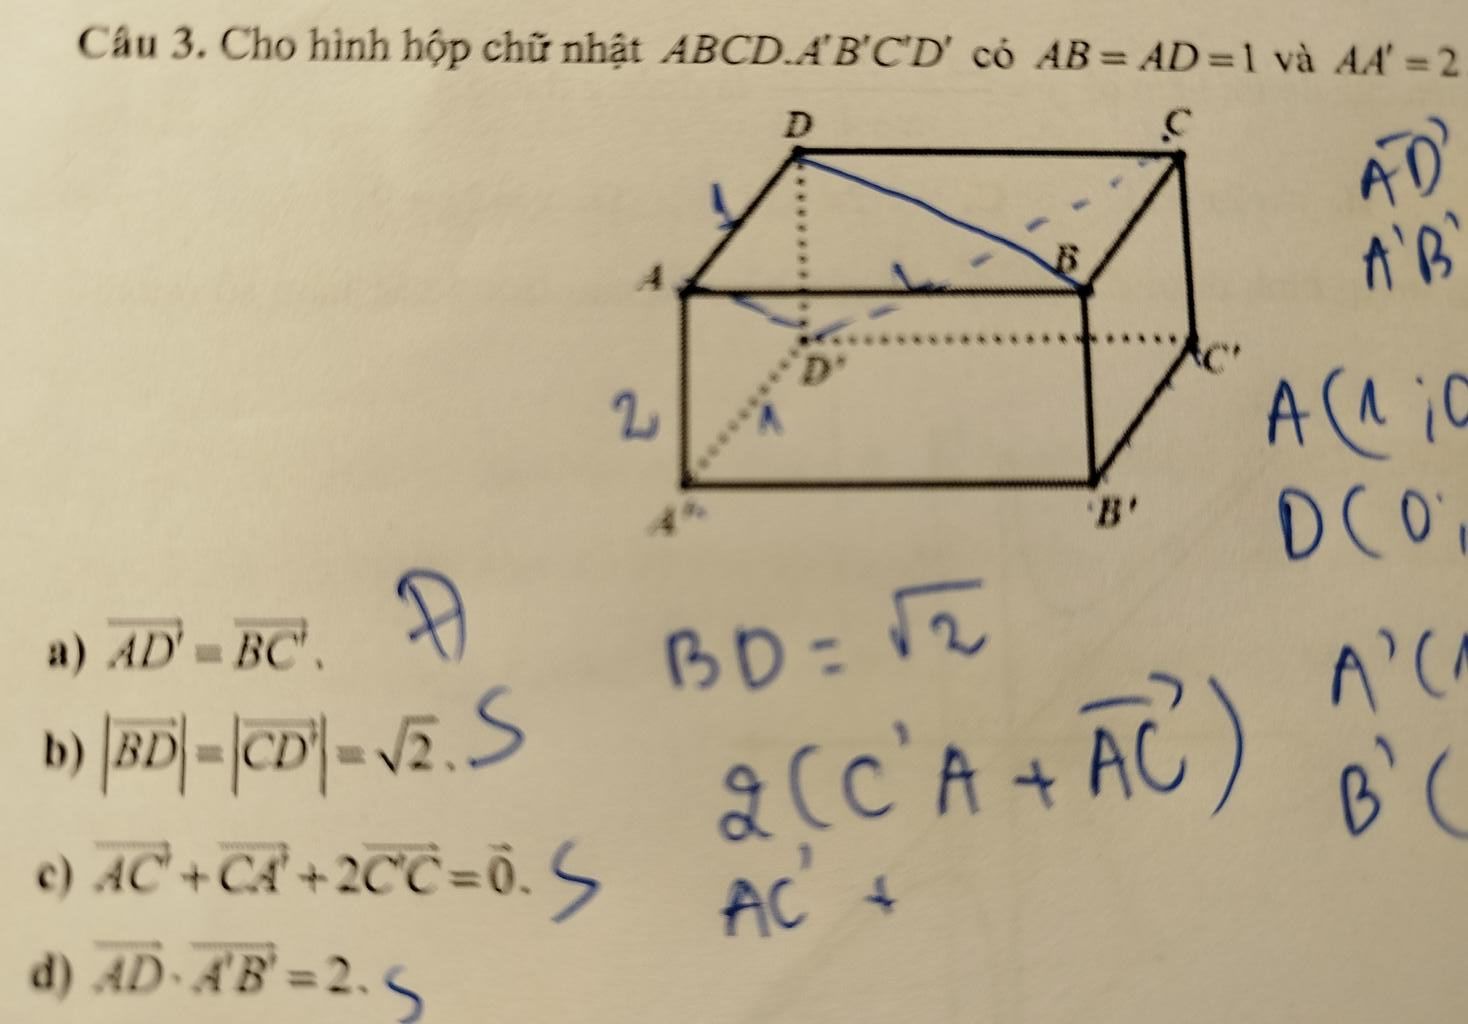 Câu 3. Cho hình hộp chữ nhật ABCD.A'B'C'D' có AB = AD = 1 và AA' = 2
D
C
AD'
A'B'
1
A
1
B
D'
C'
2
1
A(1;0
D(0;
A'
B'
a) AD' = BC'. Đ
BD = √2
A'(1
b) |BD| = |CD'| = √2. S
2(C'A + AC)
B'(
c) AC' + CA' + 2C'C = 0. S
AC' +
d) AD · A'B' = 2. S